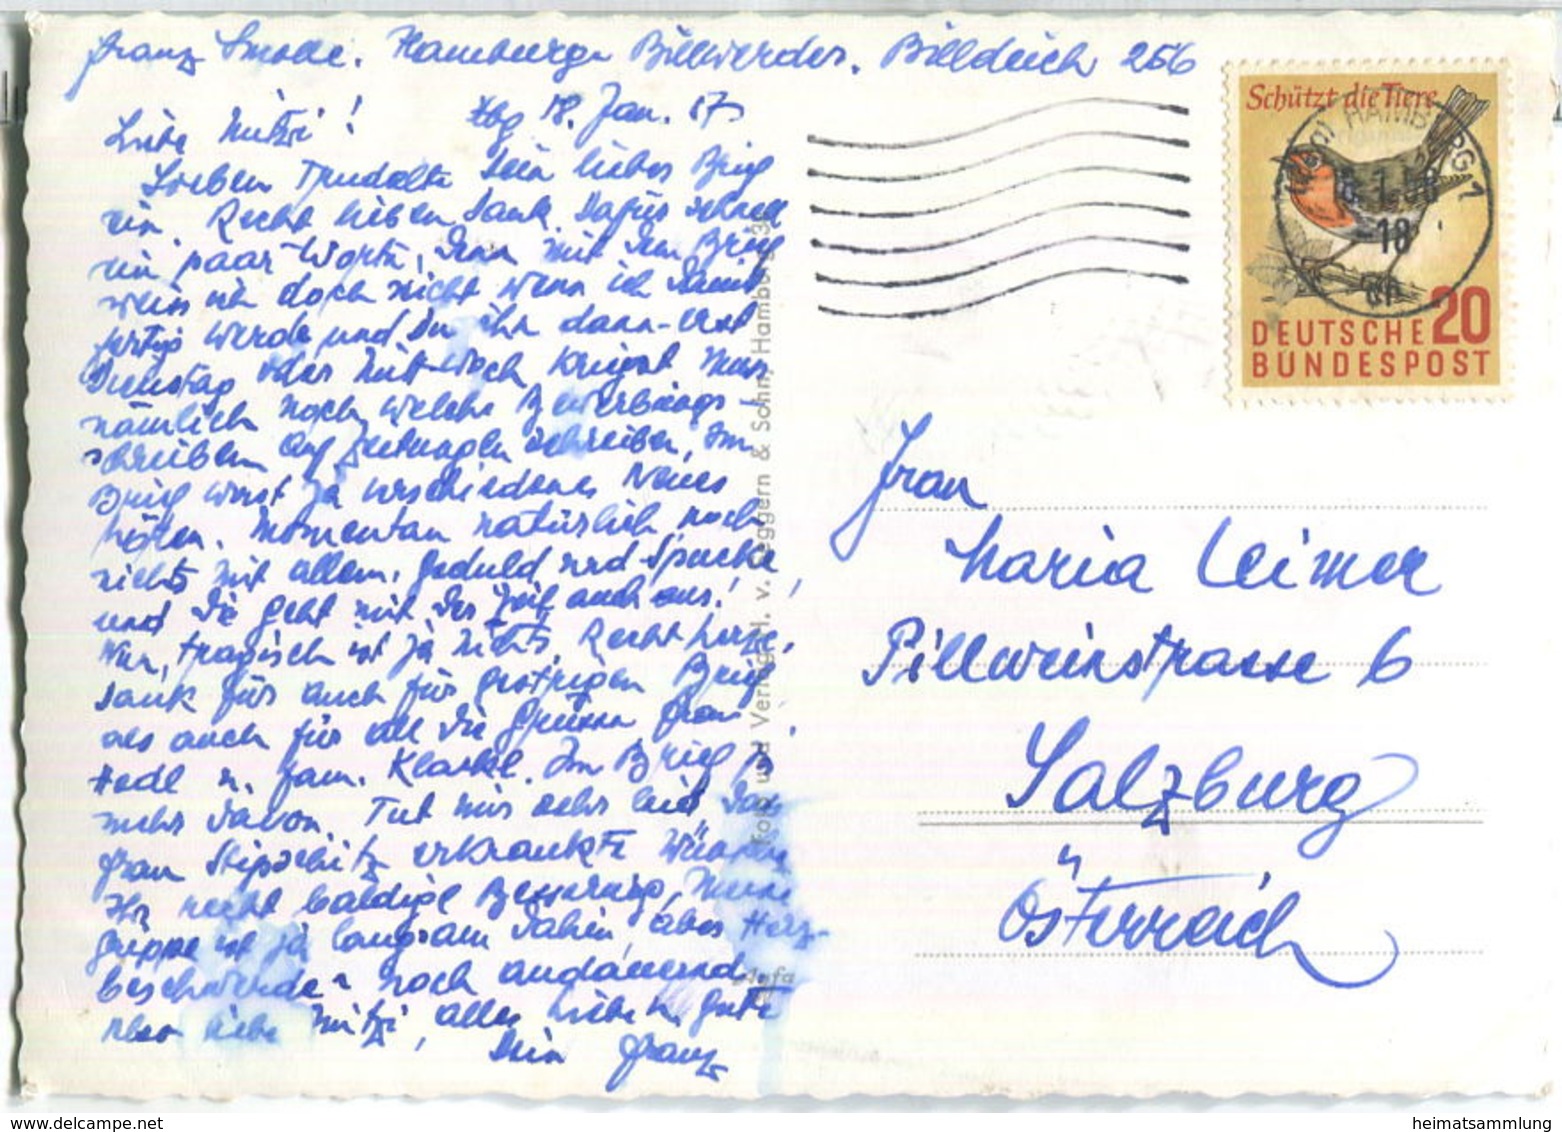 Franz Smolle. Hamburg - Billwerder. Billdeich 256
Hbg 18. Jan. 57
Liebe Mitzi!
Soeben trudelte Dein lieber Brief
ein. Recht lieben Dank. Dafür schnell
ein paar Worte, denn mit dem Brief
weiss ich doch nicht wann ich damit
fertig werde und Du ihn dann erst
Dienstag oder Mittwoch kriegst. Muss
nämlich noch welche Bewerbungs-
schreiben auf Zeitungen schreiben, Im
Brief wirst ja verschiedenes Neues
hören. Momentan natürlich noch
nichts mit allem. Geduld und Spucke,
und die geht mit der Zeit auch aus!
Nun, tragisch ist ja nichts. Recht herzl.
Dank für auch für Brief,
als auch für all die Grüsse Frau
Hedl u. Fam. Im Brief ja
mehr davon. Tut mir sehr leid das
Frau Stipschitz erkrankte Wünsche
Ihr recht baldige Besserung. Meine
Grippe ist ja langsam dahin, aber Herz-
beschwerden noch andauernd
Also liebe Mitzi, alles Liebe u. Gute
Dein Franz
Kopp und Verlag H. v. Seggern & Sohn, Hamburg 3
Agfa
Schützt die Tiere
HAMBURG 1
18
DEUTSCHE 20
BUNDESPOST
Frau
Maria Leimer
Pillweinstrasse 6
Salzburg
Österreich
delcampe.net
heimatsammlung